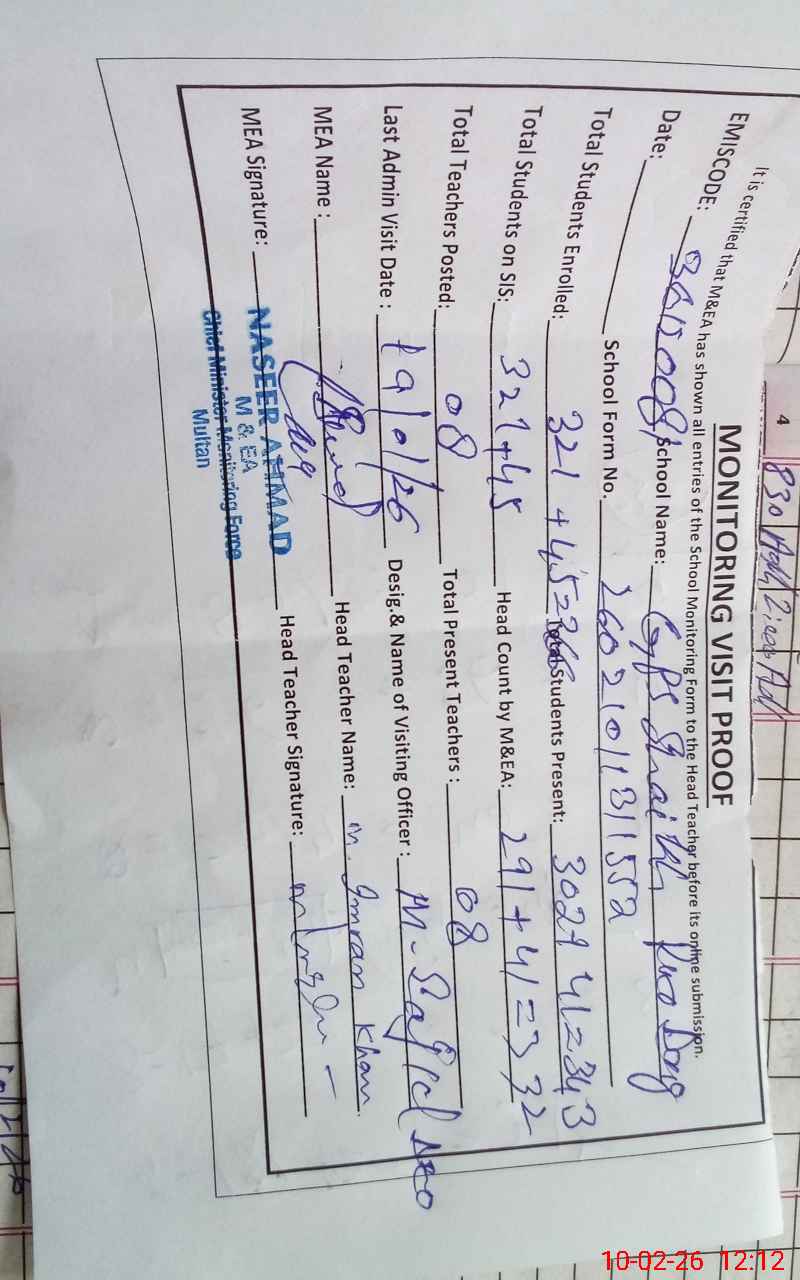 4
MONITORING VISIT PROOF
It is certified that M&EA has shown all entries of the School Monitoring Form to the Head Teacher before its online submission.
EMISCODE: School Name: GPS
Date: School Form No. 2602101131155
Total Students Enrolled: 321 + 45 = 366 Total Students Present: 302 + 41 = 343
Total Students on SIS: 321 + 45 Head Count by M&EA: 291 + 41 = 332
Total Teachers Posted: 08 Total Present Teachers : 08
Last Admin Visit Date : Desig.& Name of Visiting Officer : M. Sajid
MEA Name : Head Teacher Name: M. Imran Khan
MEA Signature: Head Teacher Signature:
NASEER AHMAD
M & EA
Chief Minister Monitoring Force
Multan
10-02-26 12:12